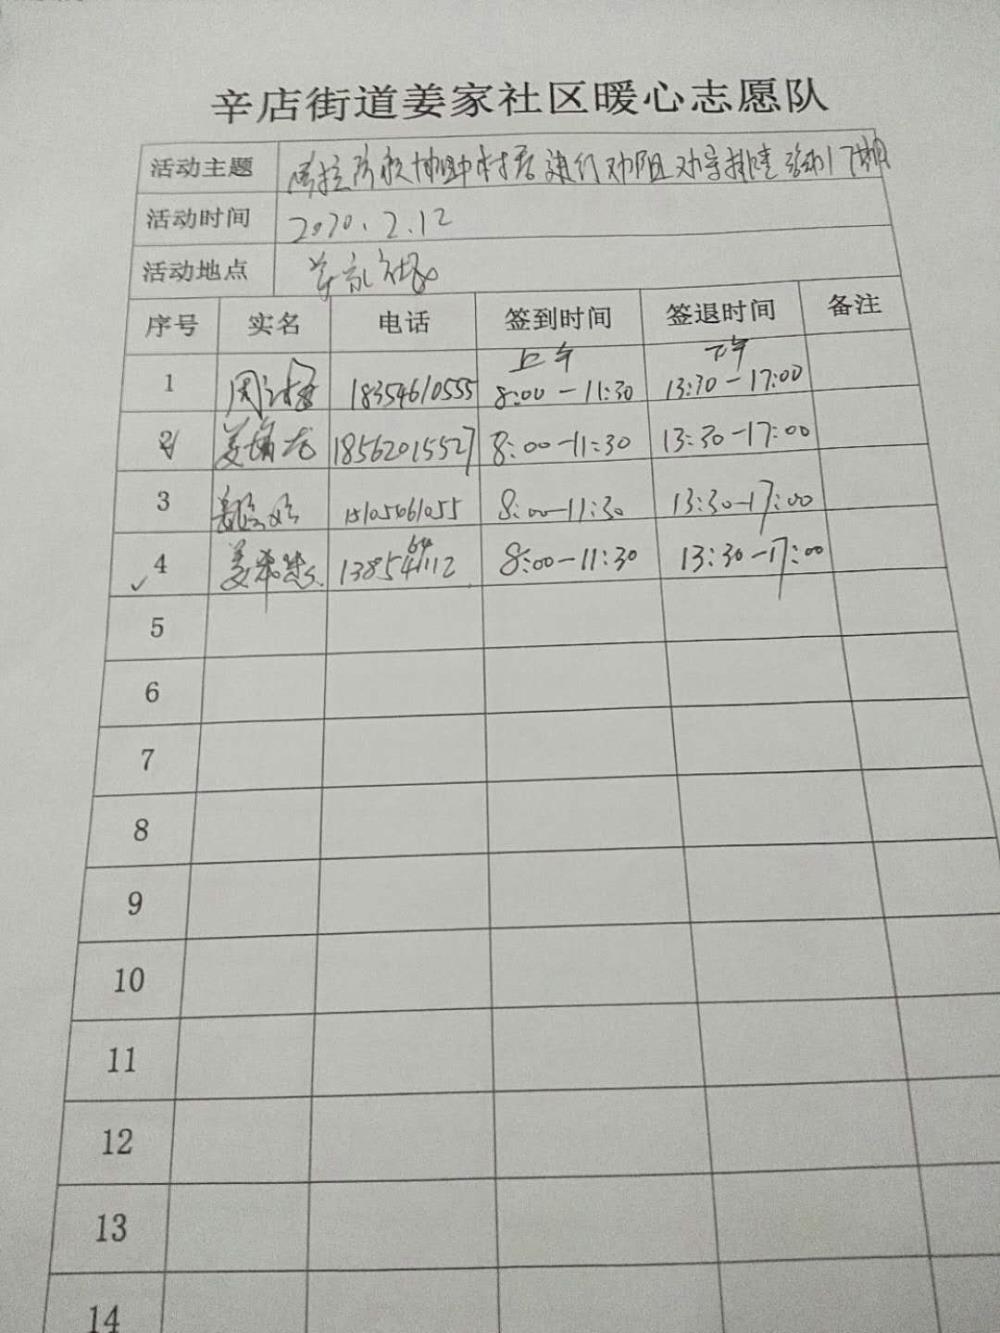 辛店街道姜家社区暖心志愿队
活动主题 协助村居进行劝阻 排查
活动时间 2020.2.12
活动地点 姜家社区
序号 实名 电话 签到时间 签退时间 备注
上午 下午
1 周 18354610555 8:00-11:30 13:30-17:00
2 姜 龙 18562015527 8:00-11:30 13:30-17:00
3 8:00-11:30 13:30-17:00
4 姜希 8:00-11:30 13:30-17:00
5
6
7
8
9
10
11
12
13
14